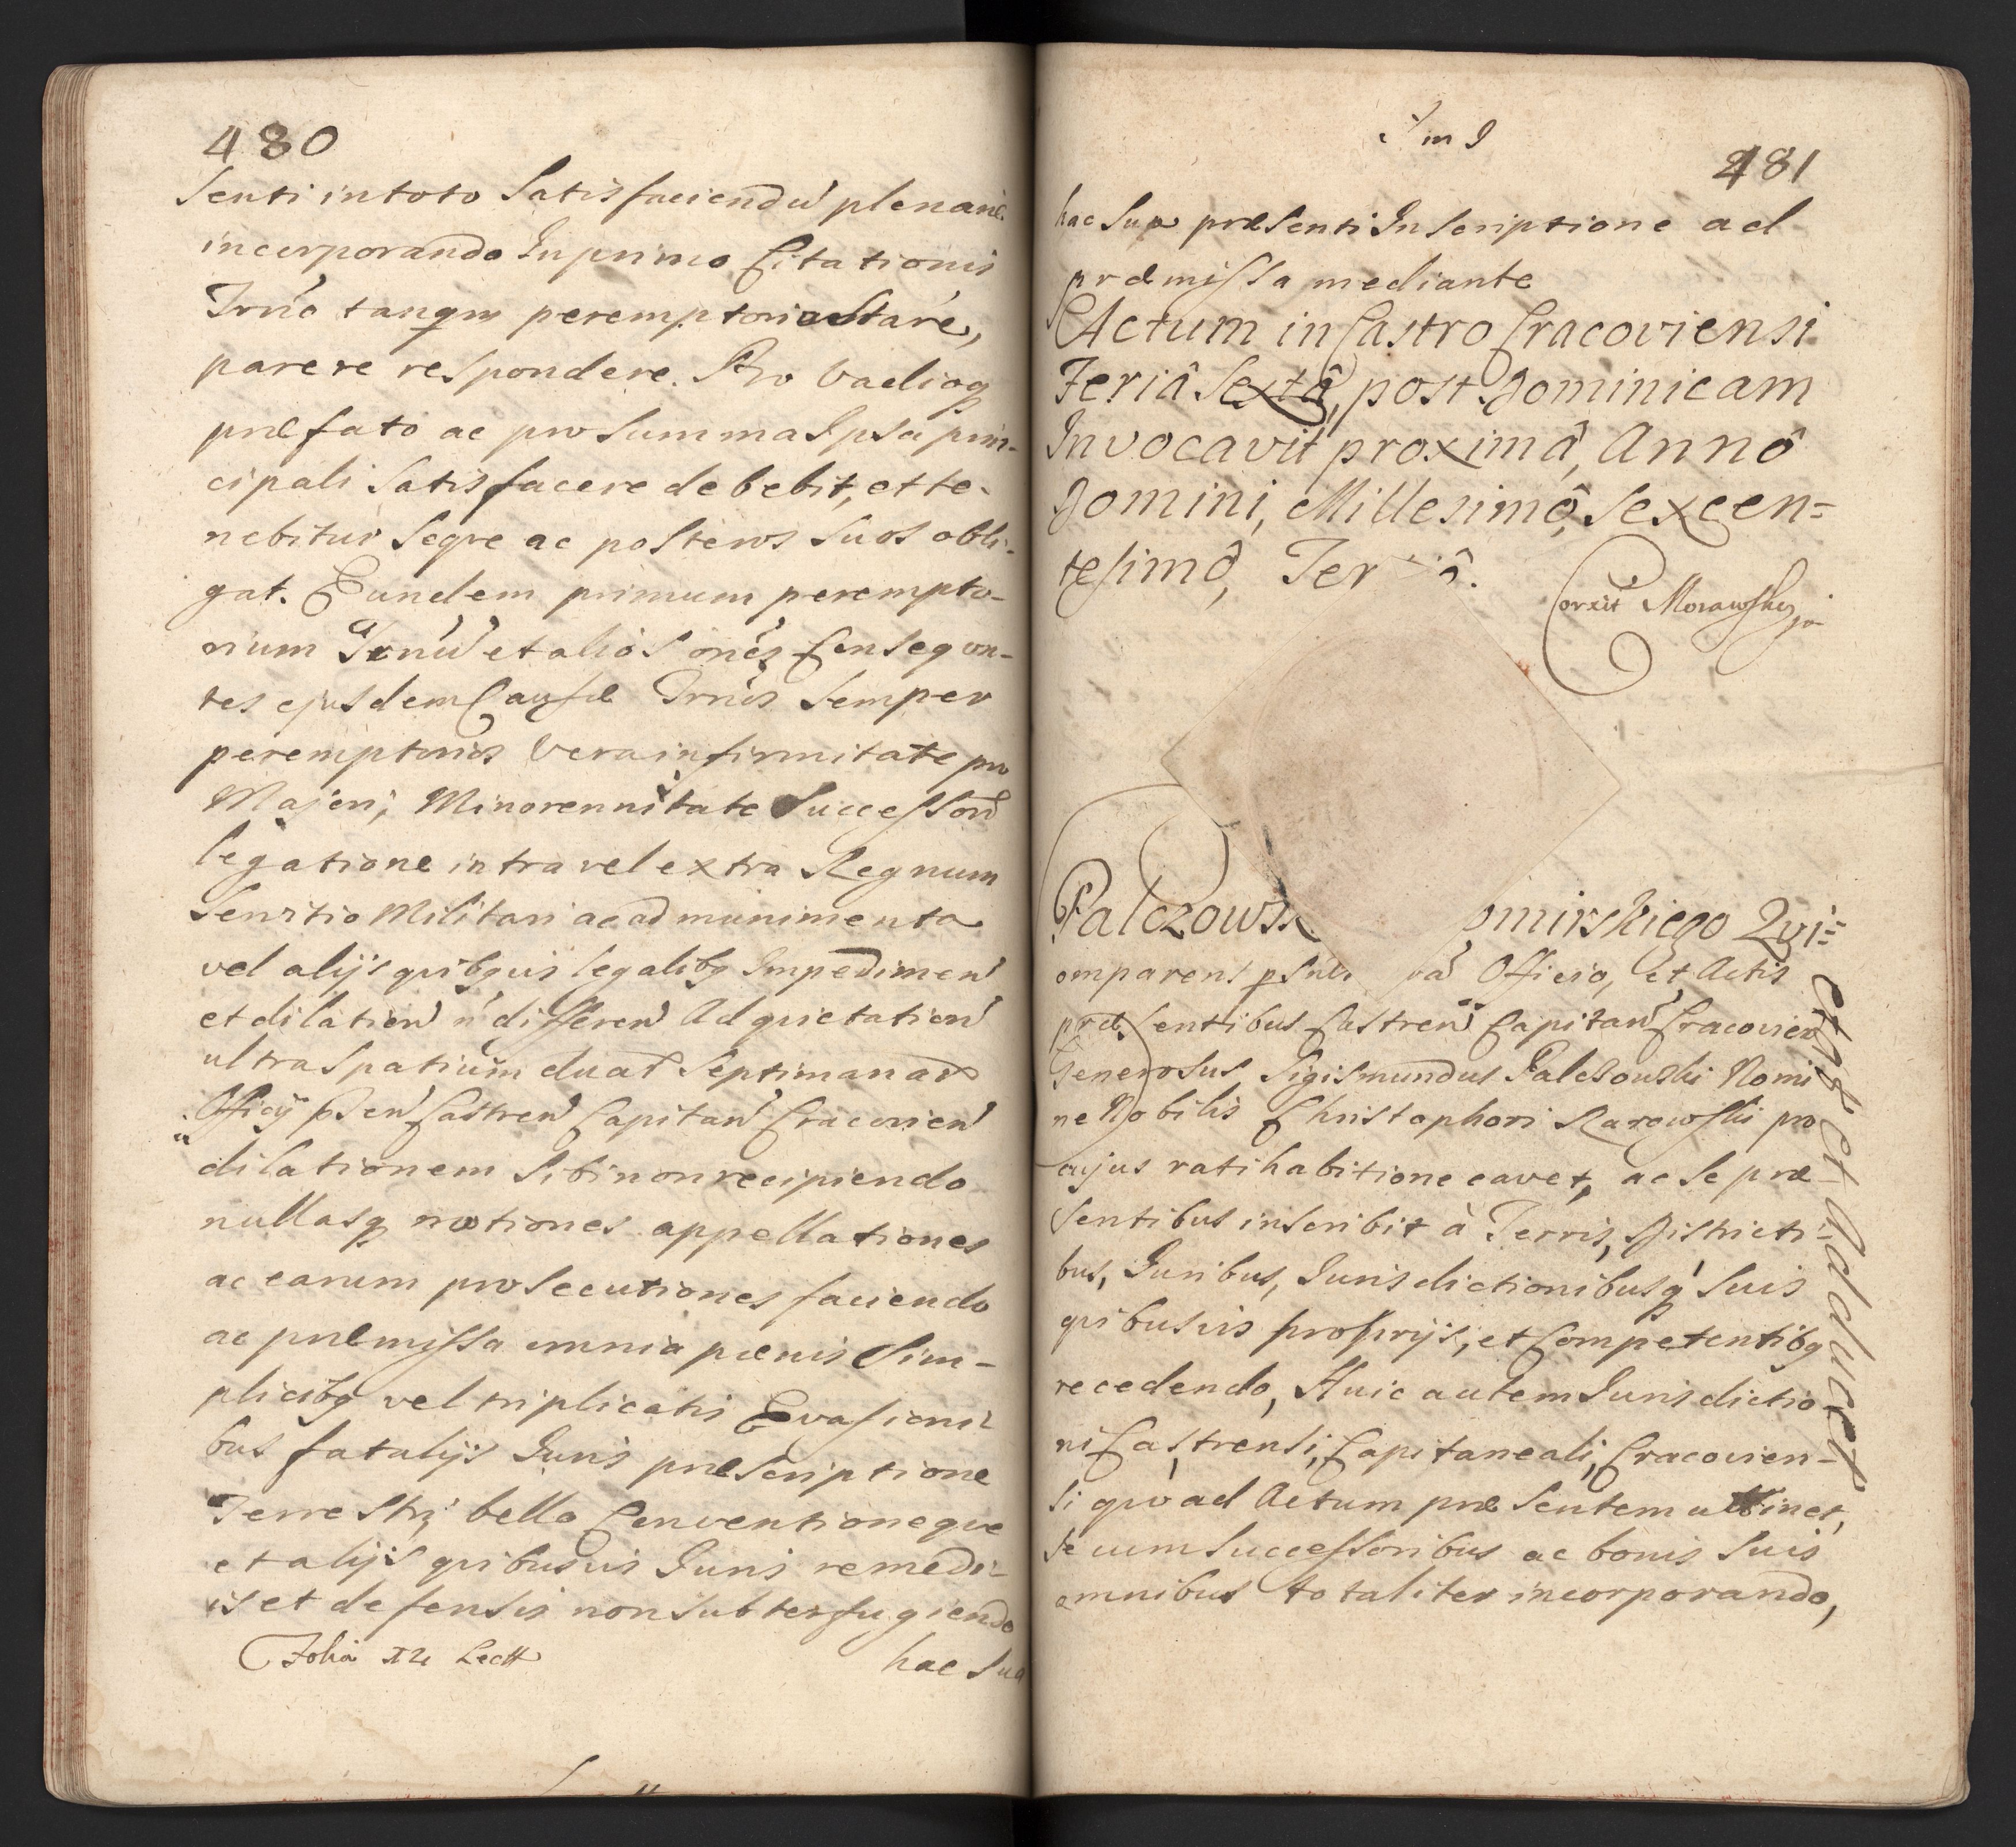 480
senti in toto Satisfaciendu plenarie
incorporando In primo Citationis
Trno tanqm peremptorie Stare,
parere respondere. Pro Vadioq
præfato ac pro Summa Ipsa prin-
cipali Satisfacere debebit, et te-
nebitur Seqve ac posteros Suos obli-
gat. Eundem primum perempto-
rium Trnu et alios ones Conseqven-
tes ejusdem Causæ Trnos Semper
peremptorios Vera infirmitate pro
Majori, Minorennitate Successoru
legatione intra vel extra Regnum
Servitio Militari ac ad munimenta
vel alijs qvibqvis legalibq Impedimen
et dilation n differen Ad qvietation
ultra Spatium duar Septimanar
Officij pSen Castren Capitan Cracovien
dilationem Sibi non recipiendo
nullasq motiones appellationes
ac earum prosecutiones faciendo
ac præmissa omnia pænis Sim-
plicibq vel triplicatis Evasioni-
bus fatalijs Juris præscriptione
Terrestri bello Conventioneqve
et alijs qvibusvis Juris remedi-
is et defensis non subterfugiendo
Folia Lectt
hac Sua
481
hac Sua præsenti Inscriptione ad
præmissa mediante
Actum in Castro Cracoviensi
Feriâ Sextâ, post Dominicam
Invocavit proximâ, Annô
Domini, Millesimô, Sexcen=
tesimô, Ter â.
Corxit Morawsky
Palczowsk omirskiego Qvi=
omparens Officio, et Actis
præsentibus Castren Capitan Cracovien
Generosus Sigismundus Palczowski Nomi
ne Nobilis Christophori Rarowski pro
cujus ratihabitione cavet, ac Se præ-
sentibus inscribit à Terris, Districti-
bus, Juribus, Jurisdictionibusq Suis
qvibusvis proprijs, et Competentibq
recedendo, Huic autem Jurisdictio-
ni Castrensi, Capitaneali, Cracovien-
si qvo ad Actum præsentem attinet,
Se cum Successoribus ac bonis Suis
omnibus totaliter incorporando,
et Adducet